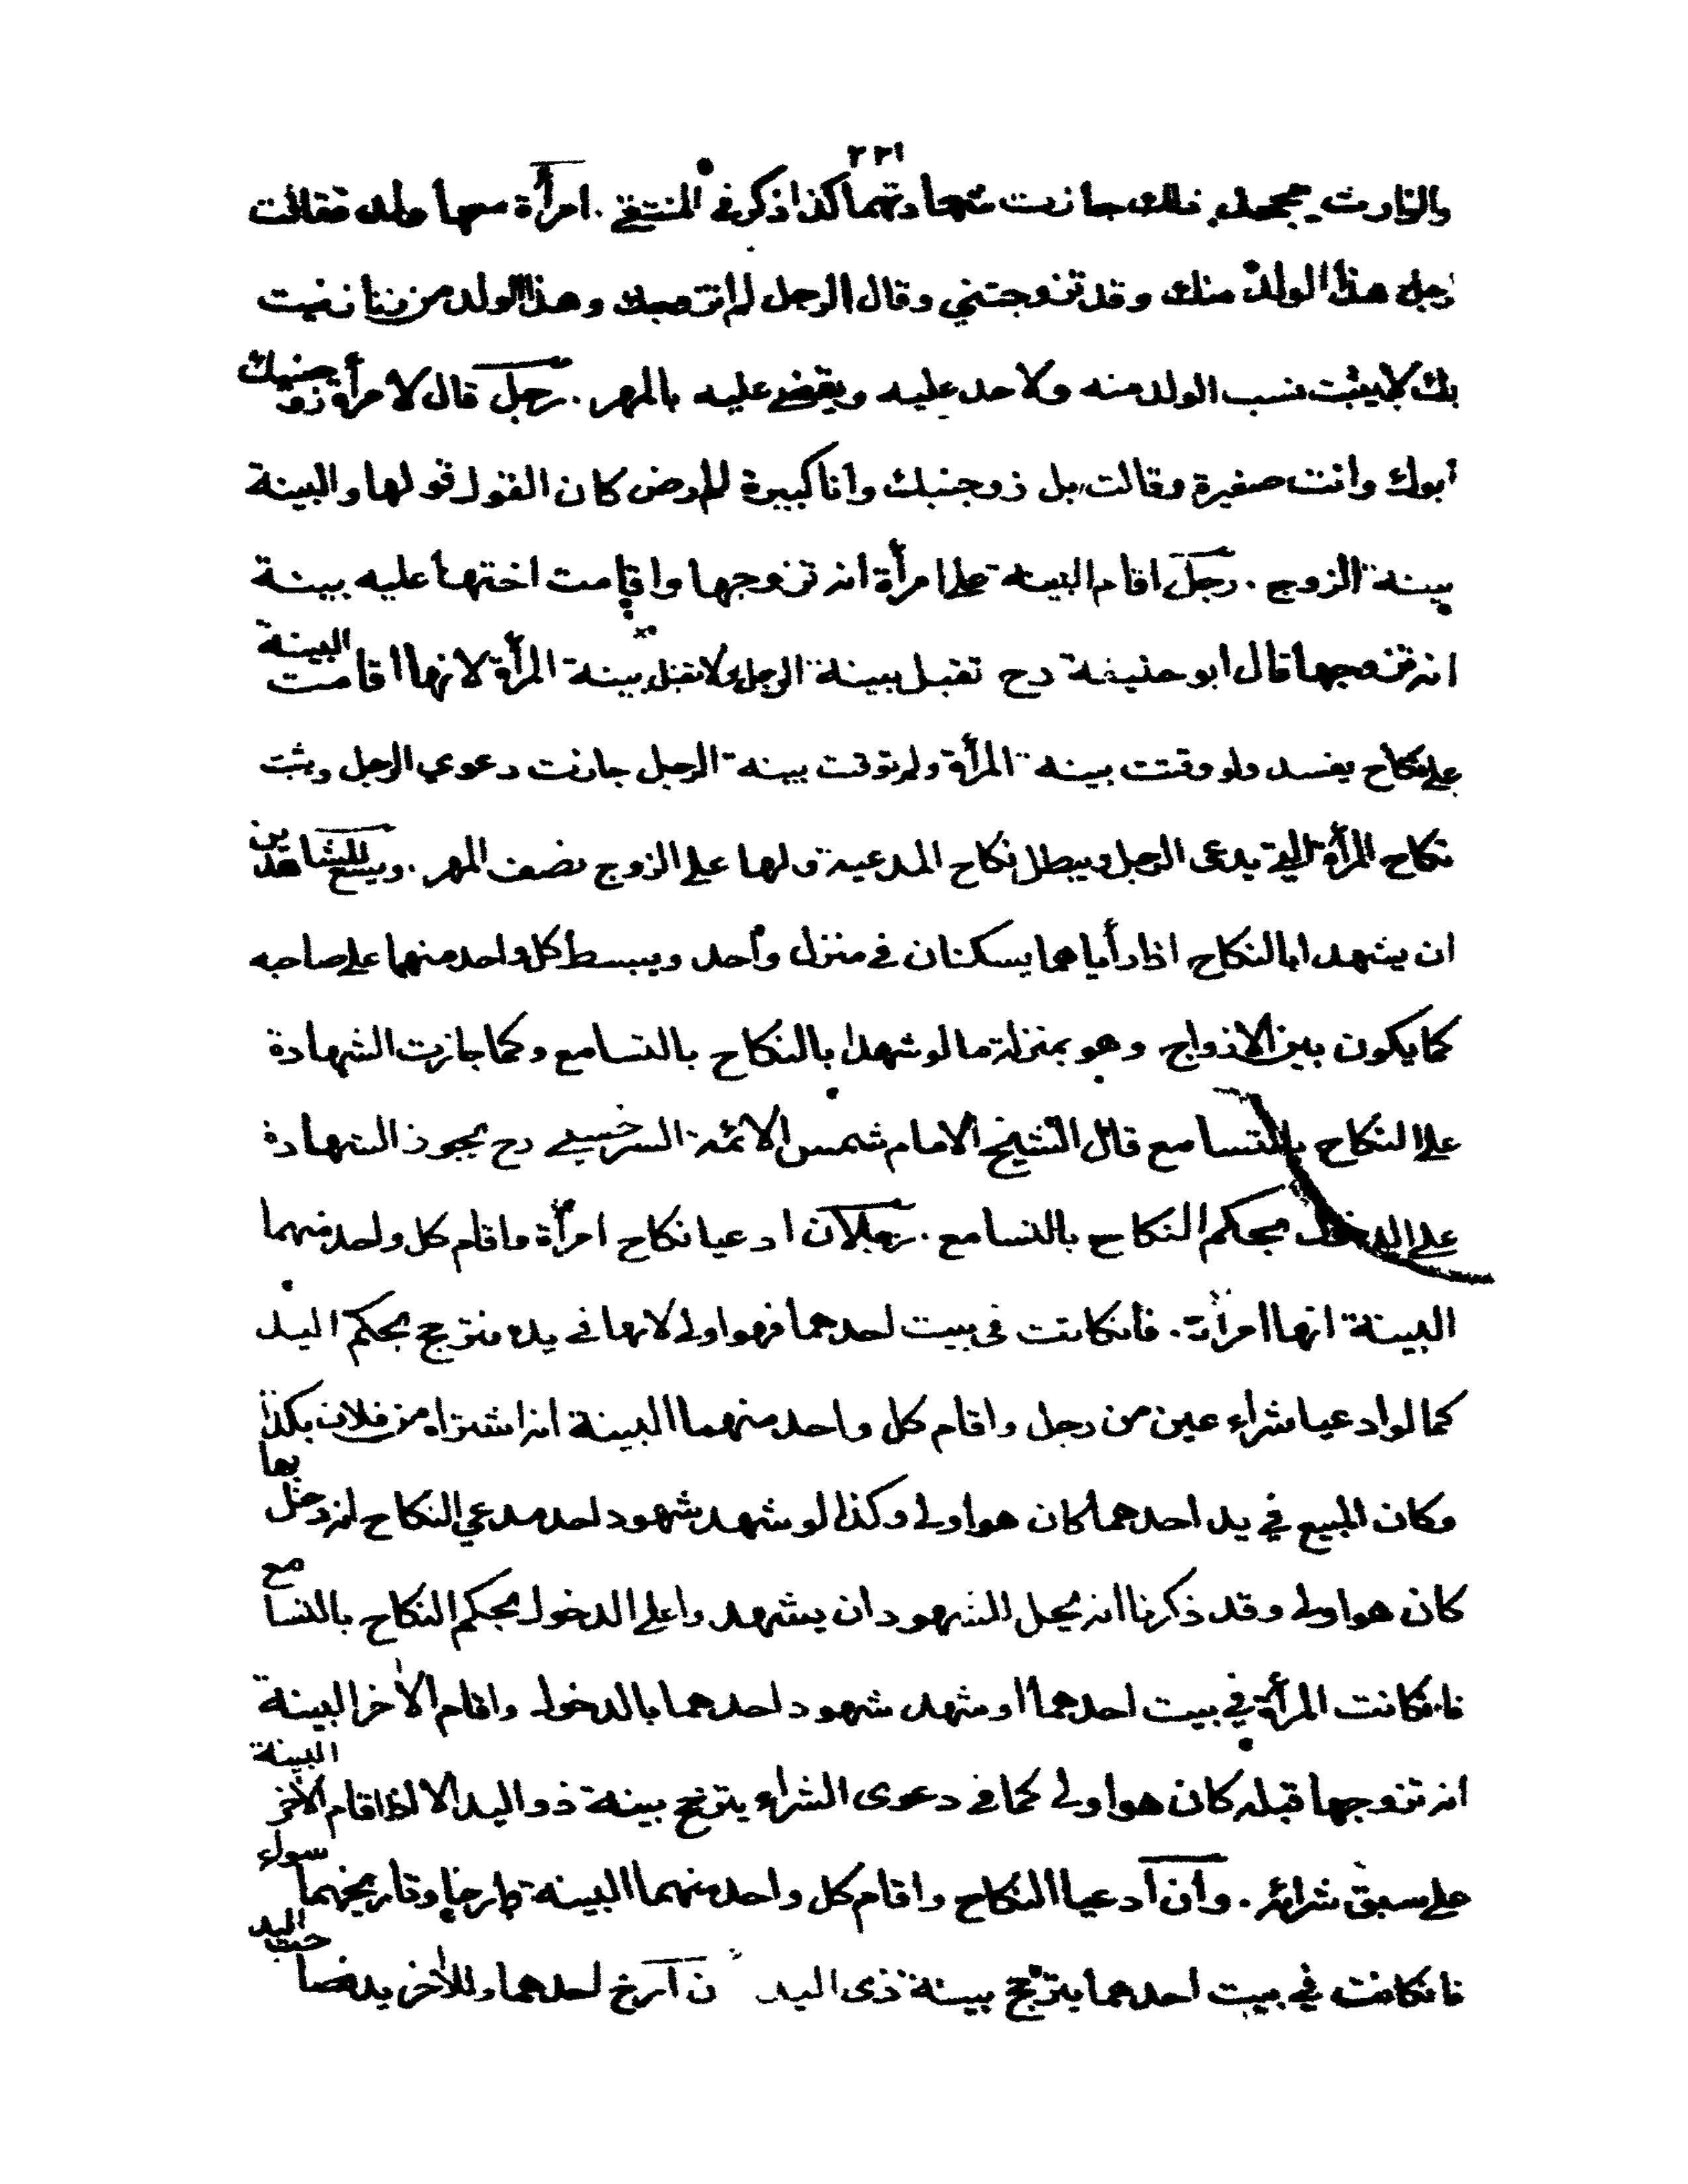 ٢٢١
والوارث يجحد ذلك جازت شهادتهما كذا ذكر في المنتقى . امرأة معها ولد فقالت
رجل هذا الولد منك وقد تزوجتني وقال الرجل لم اتزوجك وهذا الولد من زنا زنيت
بك لا يثبت نسب الولد منه ولا حد عليه ويقضى عليه بالمهر . رجل قال لامرأة زوجنيك
ابوك وانت صغيرة وقالت بل زوجنيك وانا كبيرة لم ارض كان القول قولها والبينة
بينة الزوج . رجل اقام البينة على امرأة انه تزوجها واقامت اختها عليه بينة
انه تزوجها قال ابو حنيفة رح تقبل بينة الرجل ولا تقبل بينة المرأة لانها اقامت البينة
على نكاح يفسد ولو وقتت بينة المرأة ولم توقت بينة الرجل جازت دعوي الرجل ويثبت
نكاح المرأة التي يدعى الرجل ويبطل نكاح المدعية ولها على الزوج نصف المهر . ويسع للشاهدين
ان يشهدا بالنكاح اذا رأياهما يسكنان في منزل واحد وينبسط كل واحد منهما على صاحبه
كما يكون بين الازواج وهو بمنزلة ما لو شهدا بالنكاح بالتسامع وكما جازت الشهادة
على النكاح بالتسامع قال الشيخ الامام شمس الائمة السرخسي رح يجوز الشهادة
على الدخول بحكم النكاح بالتسامع . رجلان ادعيا نكاح امرأة واقام كل واحد منهما
البينة انها امرأته . فان كانت في بيت احدهما فهو اولى لانها في يده فترجح بحكم اليد
كما لو ادعيا شراء عين من رجل واقام كل واحد منهما البينة انه اشتراه من فلان بكذا
وكان المبيع في يد احدهما كان هو اولى وكذا لو شهد شهود احد مدعي النكاح انه دخل بها
كان هو اولى وقد ذكرنا انه يحل للشهود ان يشهدوا على الدخول بحكم النكاح بالتسامع
فان كانت المرأة في بيت احدهما او شهد شهود احدهما بالدخول واقام الاخر البينة
انه تزوجها قبله كان هو اولى كما في دعوى الشراء يترجح بينة ذو اليد الا اذا اقام الاخر البينة
على سبق شرائه . وان ادعيا النكاح واقام كل واحد منهما البينة وارخا وتاريخهما سواء
فان كانت في بيت احدهما يترجح بينة ذى اليد ن ارخ احدهما وللاخر يد فصاحب اليد